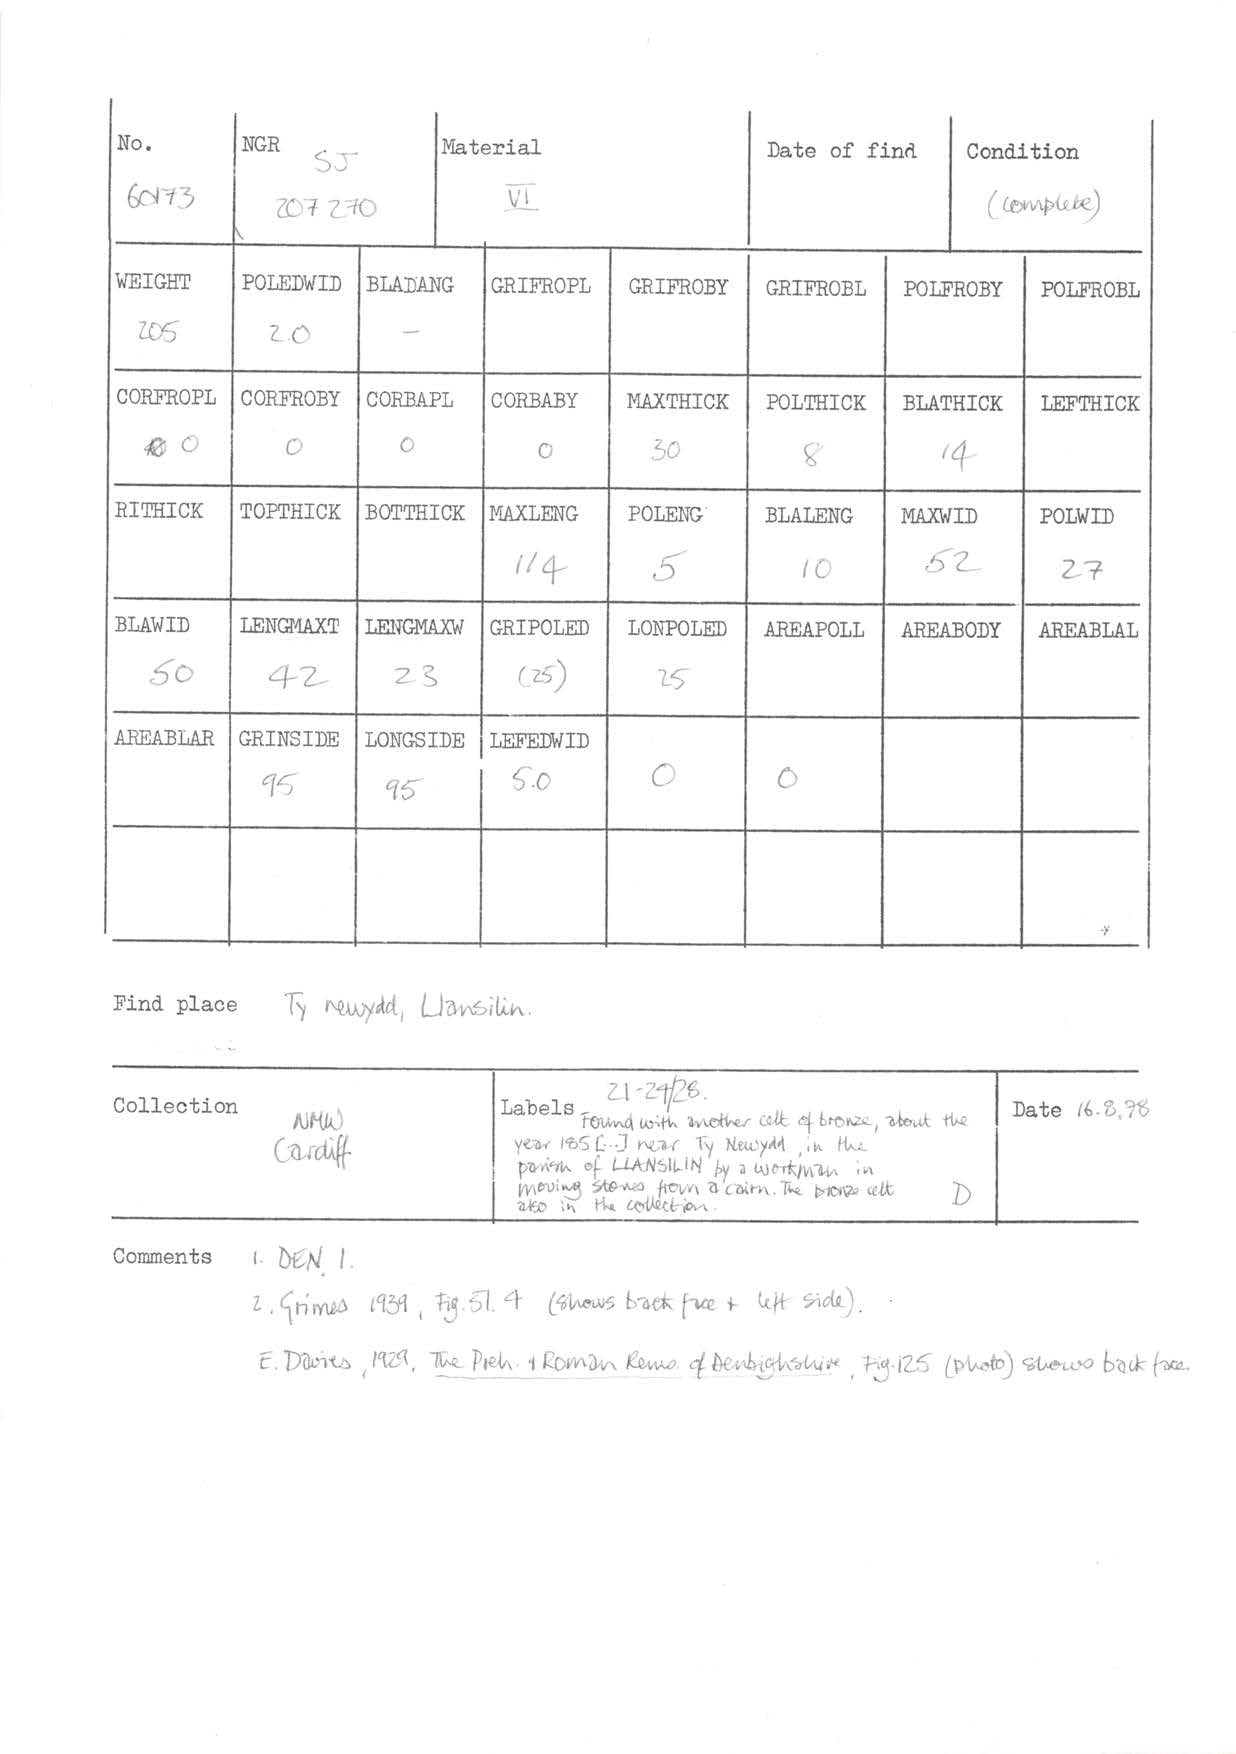 No. NGR Material Date of find Condition
60173 SJ 207 270 VI (complete)
WEIGHT POLEDWID BLADANG GRIFROPL GRIFROBY GRIFROBL POLFROBY POLFROBL
205 2.0 -
CORFROPL CORFROBY CORBAPL CORBABY MAXTHICK POLTHICK BLATHICK LEFTHICK
0 0 0 0 30 8 14
RITHICK TOPTHICK BOTTHICK MAXLENG POLENG BLALENG MAXWID POLWID
114 5 10 52 27
BLAWID LENGMAXT LENGMAXW GRIPOLED LONPOLED AREAPOLL AREABODY AREABLAL
50 42 23 (25) 25
AREABLAR GRINSIDE LONGSIDE LEFEDWID
95 95 5.0 0 0
Find place Ty newydd, Llansilin.
Collection NMW Cardiff
Labels 21-24/28.
Found with another celt of bronze, about the
year 185[...] near Ty Newydd, in the
parish of LLANSILIN by a workman in
moving stones from a cairn. The bronze celt
also in the collection. D
Date 16.8.78
Comments 1. DEN 1.
2. Grimes 1939, Fig. 51. 4 (shows back face + left side).
E. Davies, 1929, The Preh. + Roman Rems. of Denbighshire, Fig. 125 (photo) shows back face.